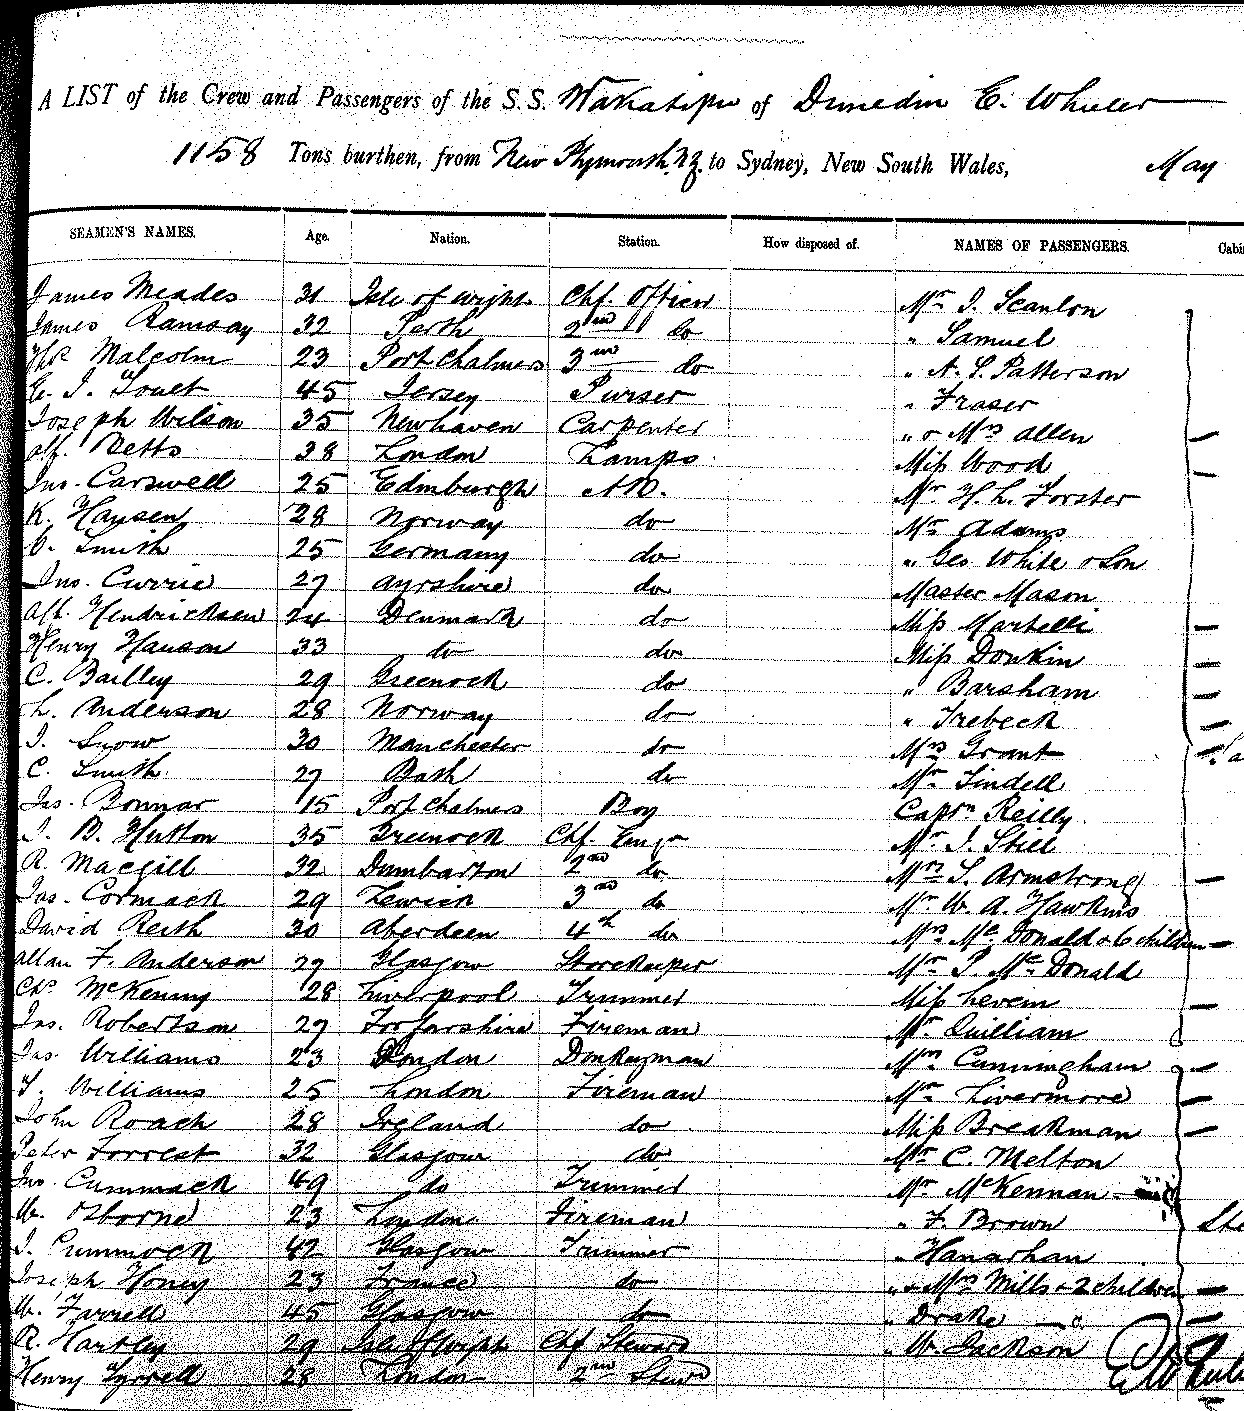 A LIST of the Crew and Passengers of the S.S. Wakatipu of Dunedin E. Wheeler
1158 Tons burthen, from New Plymouth N.Z. to Sydney, New South Wales, May
SEAMEN'S NAMES. Age. Nation. Station. How disposed of. NAMES OF PASSENGERS. Cabi
James Meades 31 Isle of Wight Chf. Officer Mr J. Scanlon
James Ramsay 32 Perth 2nd do " Samuel
Malcolm 23 Port Chalmers 3rd do " A. S. Patterson
E. J. Touet 45 Jersey Purser " Fraser
Joseph Wilson 35 Newhaven Carpenter " & Mrs Allen
Alf. Betts 38 London Lamps Miss Wood
Jno. Carswell 25 Edinburgh A.B. Mr H. L. Forster
K. Hansen 28 Norway do Mr Adams
O. Smith 25 Germany do " Geo White & Son
Jno. Currie 27 Ayrshire do Master Mason
Alf. Hendricksen 24 Denmark do Miss Martelli
Henry Hanson 33 do do Miss Donkin
C. Bailley 29 Greenock do " Barsham
L. Anderson 28 Norway do " Trebeck
J. Snow 30 Manchester do Mrs Grant
C. Smith 27 Bath do Mr Lindell
Jas. Bonnar 15 Port Chalmers Boy Captn Reilly
J. B. Hutton 35 Greenock Chf. Engr Mr J. Still
R. Macgill 32 Dumbarton 2nd do Mrs S. Armstrong
Jas. Cormack 29 Lewick 3rd do Mr W. A. Hawkins
David Reith 30 Aberdeen 4th do Mrs McDonald & 6 children
Allan F. Anderson 27 Glasgow Storekeeper Mr P. McDonald
Chs McKenny 28 Liverpool Trimmer Miss Levem
Jas. Robertson 27 Forfarshire Fireman Mr Quilliam
Jas. Williams 23 London Donkeyman Mrs Cunningham
T. Williams 25 London Fireman Mr Livermore
John Roach 28 Ireland do Miss Breakman
Peter Forrest 32 Glasgow do Mr C. Melton
Jno. Cummack 49 do Trimmer Mr McKennan
W. Osborne 23 London Fireman " F. Brown Ste
J. Cummock 42 Glasgow Trimmer " Hanarhan
Joseph Honey 23 France do " & Mrs Mills & 2 children
W. Farrell 45 Glasgow do " Drake
R. Hartley 29 Isle of Wight Chf Steward " W. Jackson
Henry Tyrrell 28 London 2nd Stewd